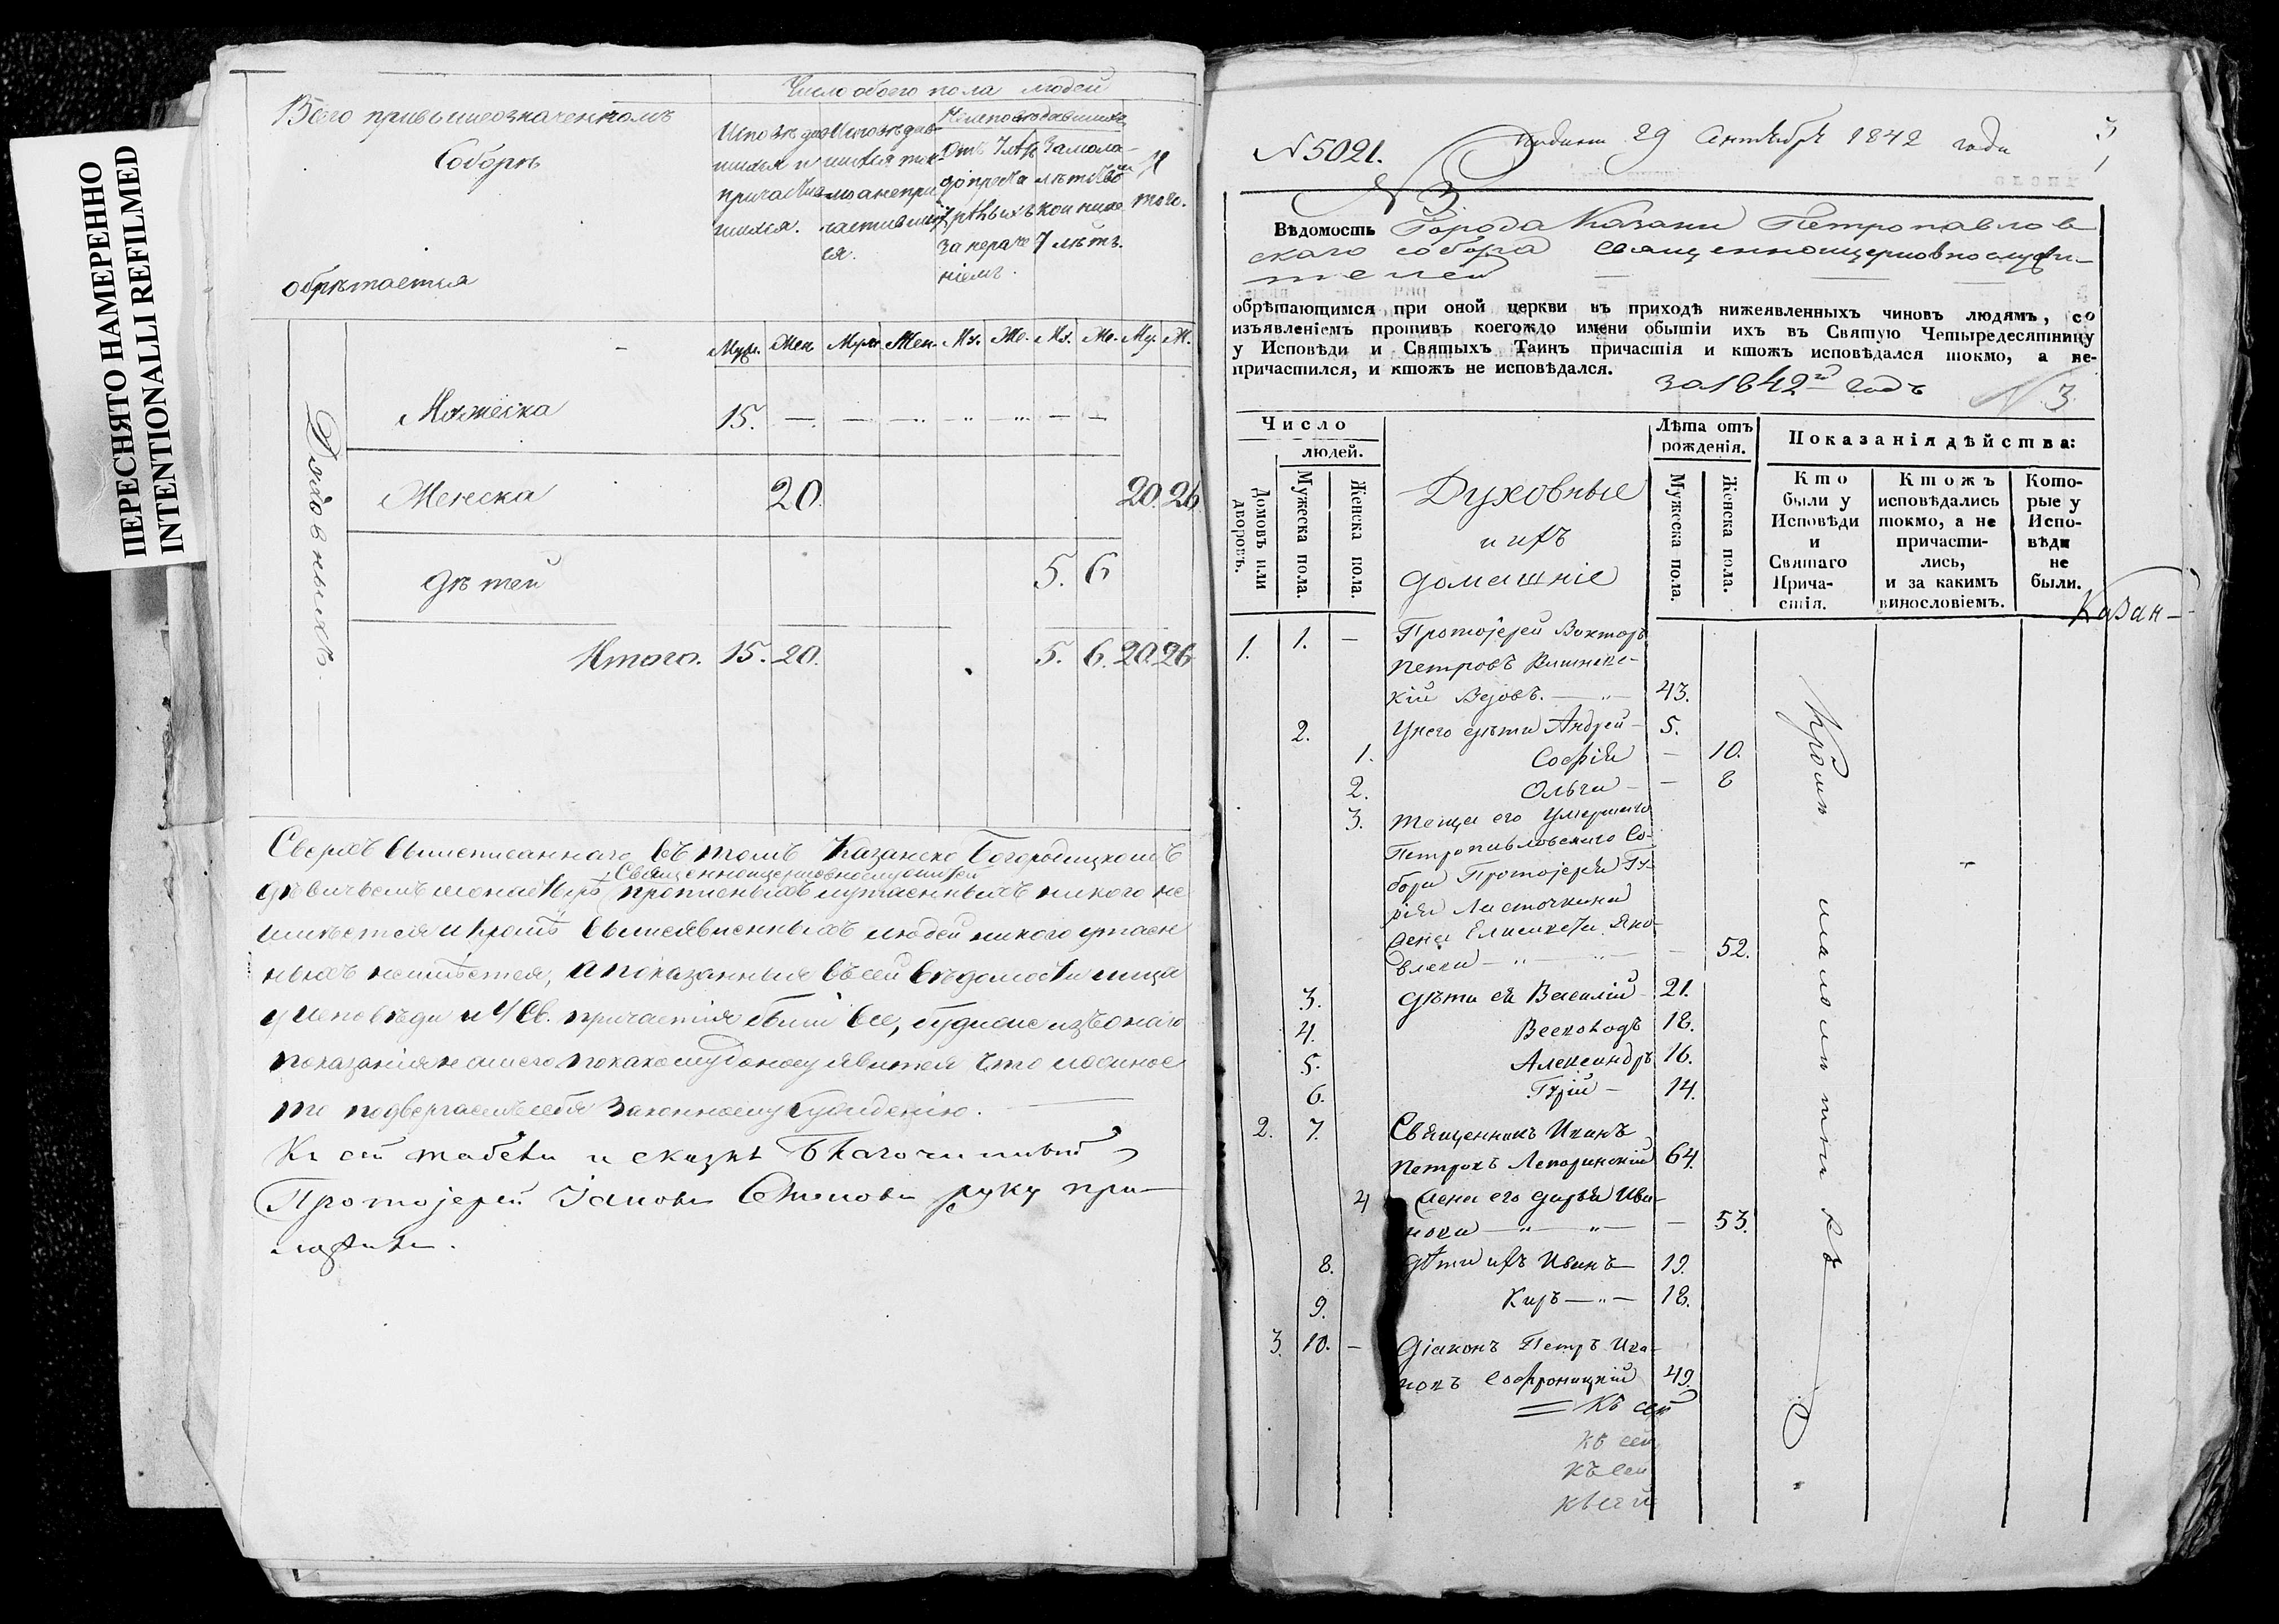 ПЕРЕСНЯТО НАМЕРЕННО
INTENTIONALLI REFILMED
Число обоего пола людей
Всего при вышеозначенномъ
Соборѣ
обрѣтается
Исповѣдав-
шихся и
причастив-
шихся.
Исповѣдав-
шихся ток-
мо а не при
частивших
ся.
Неисповѣдавшихся
Отъ 7 лѣтъ
до прест
рѣлыхъ
за нераче
ніемъ.
За мало-
лѣтствомъ
кои ниже
7 лѣтъ.
И
того.
Муж. Жен Муж Жен. Му. Же. Му. Же. Му. Ж.
Духовныхъ
Мужеска 15. — — — — — — —
Женска 20. 20. 26
дѣтей 5. 6
Итого. 15. 20. 5. 6. 20. 26
Сверхъ вышеписаннаго въ томъ Казанско Богородицкомъ
священноцерковнослужителей
дѣвичьемъ монастырѣ прописныхъ и утаенныхъ никого не
имѣется и кромѣ вышеявленныхъ людей никого утаен
ныхъ неимѣется, а показанныя въ сей вѣдомости лица
у исповѣди и у Св. причастія были все, буде же изъ онаго
показанія нашего по какому доносу явится что ложное
то подвергаемъ себя законному сужденію.
Къ сей табели и сказкѣ Благочинный
Протоіерей руку при
ложилъ.
N 5021.
Подана 29 Сентября 1842 года
3
1
N 3
Вѣдомость Города Казани Петропавлов
скаго собора священноцерковнослужи-
телей
обрѣтающимся при оной церкви въ приходѣ нижеявленныхъ чиновъ людямъ, со
изъявленіемъ противъ коегождо имени обытіи ихъ въ Святую Четыредесятницу
у Исповѣди и Святыхъ Таинъ причастія и ктожъ исповѣдался токмо, а не-
причастился, и ктожъ не исповѣдался.
за 1842й годъ
N 3.
Число
людей.
Домовъ или дворовъ.
Мужеска пола.
Женска пола.
Духовные
и ихъ
домашніе
Лѣта отъ
рожденія.
Мужеска пола.
Женска пола.
Показанія дѣйства:
Кто
были у
Исповѣди
и
Святаго
Прича-
стія.
Ктожъ
исповѣдались
токмо, а не
причасти-
лись,
и за какимъ
винословіемъ.
Кото-
рые у
Испо-
вѣди
не
были.
Казан-
1. 1. — Протоіерей Викторъ
Петровъ Вишнев-
кій Вдовъ. — 43.
2. У него дѣти Андрей — 5.
1. Софія — 10.
2. Ольга — 8
3. теща его умершаго
Петропавловскаго Со-
бора Протоіерея Гу-
рія Ласточкина
жена Елисавета Яко-
влева — — 52.
3. дѣти ея Василій 21.
4. Всеволодъ 18.
5. Александръ 16.
6. Гурій — 14.
2. 7. Священникъ Иванъ
Петровъ Лепоринскій 64.
4 Жена его Дарья Ива-
нова — — 53.
8. дѣти ихъ Иванъ — 19.
9. Киръ — 18.
3. 10. — Діаконъ Петръ Ива-
новъ Софроницкій 49.
Къ сей
къ сей
къ сей
къ сей
Кромѣ малолѣтнихъ